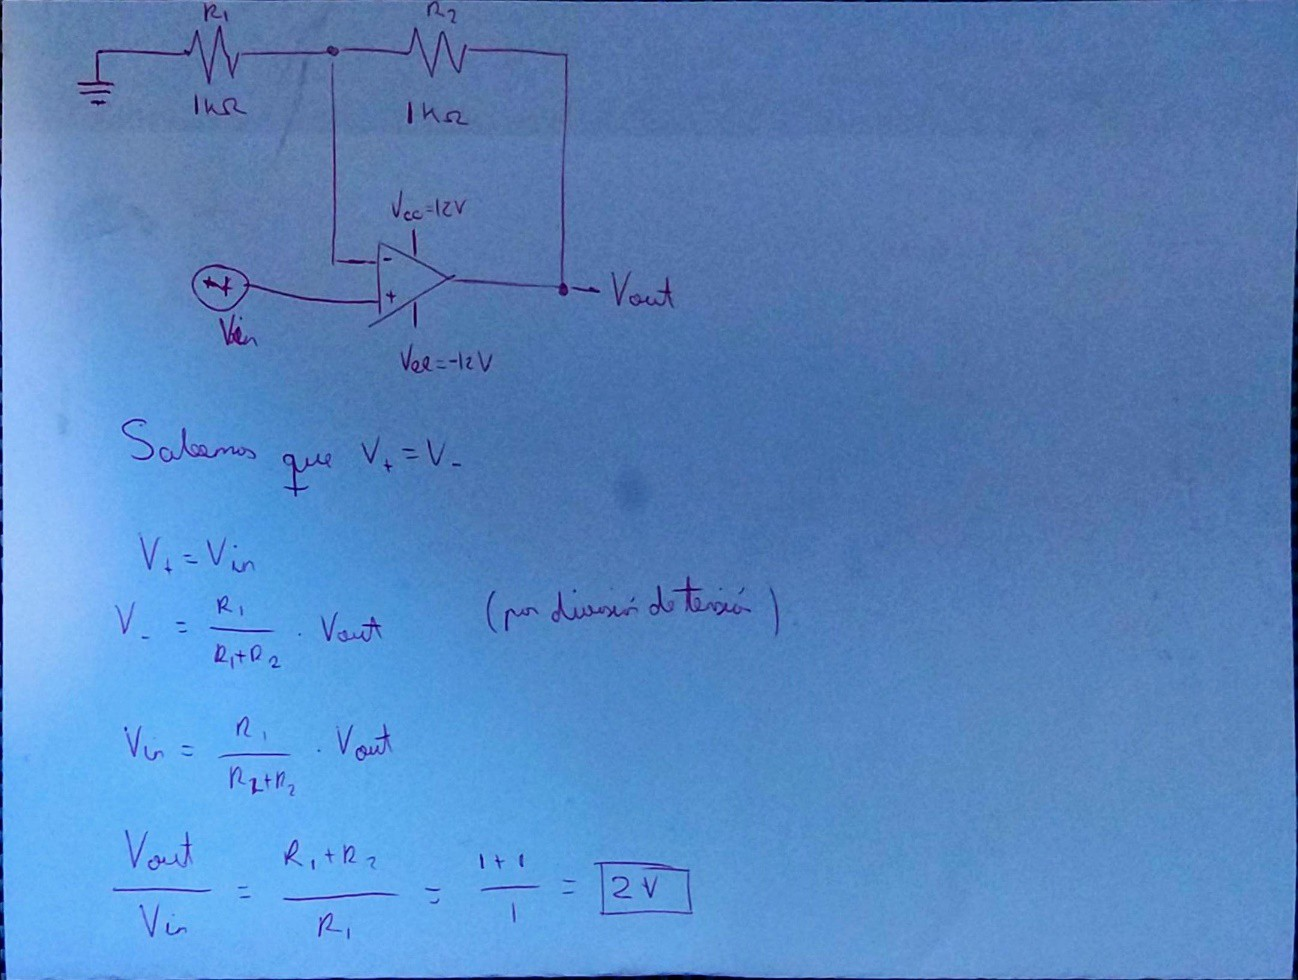 R₁ R₂
1kΩ 1kΩ
Vcc=12V
- 
+
Vin
Vout
Vee=-12V
Sabemos que V₊ = V₋
V₊ = Vin
V₋ = R₁ / R₁+R₂ · Vout (por división de tensión)
Vin = R₁ / R₁+R₂ · Vout
Vout / Vin = R₁+R₂ / R₁ = 1+1 / 1 = 2V